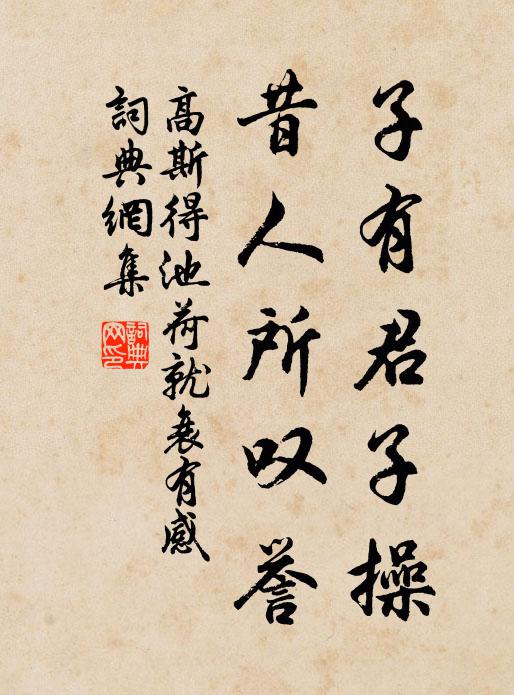 子有君子操
昔人所叹誉
高斯得池荷就衰有感
詞典網集
詞典网印